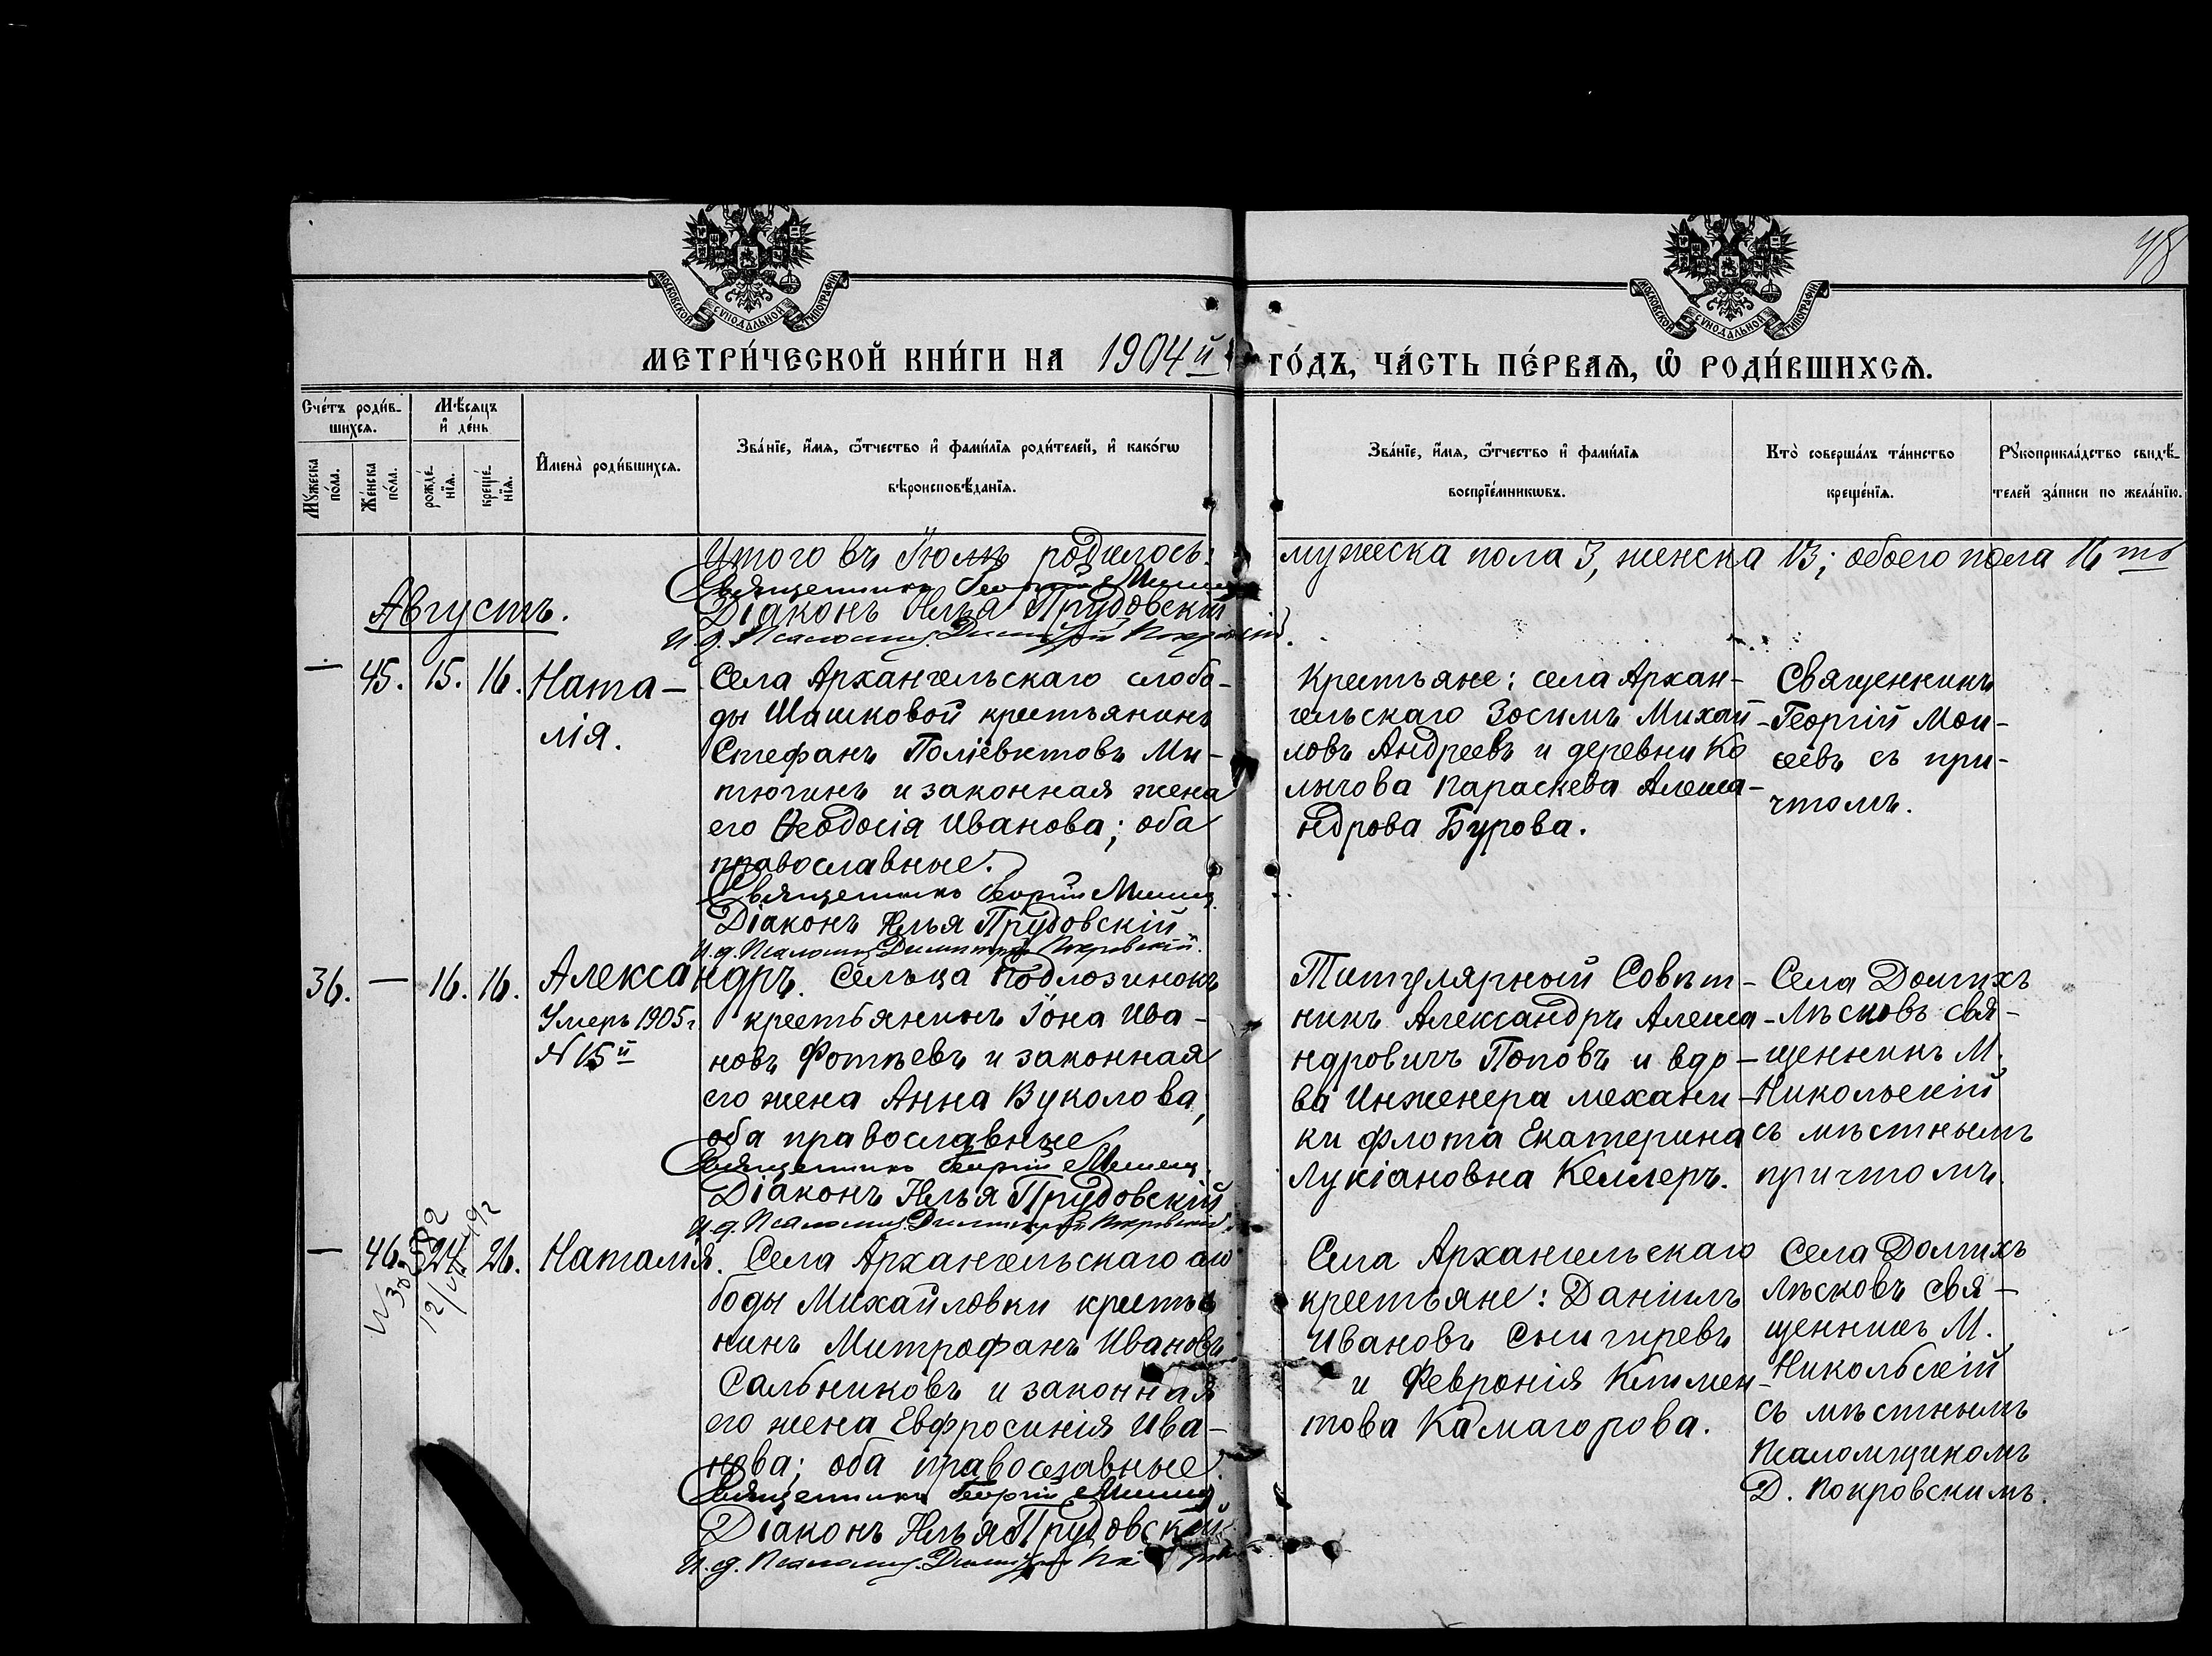 48
МОСКОВСКОЙ СУНОДАЛЬНОЙ ТИПОГРАФІИ
МОСКОВСКОЙ СУНОДАЛЬНОЙ ТИПОГРАФІИ
МЕТРИ́ЧЕСКОЙ КНИ́ГИ НА 1904й ГО́ДЪ, ЧА́СТЬ ПЕ́РВАѦ, Ѡ҆ РОДИ́ВШИХСѦ.
Сче́тъ роди́в-
шихсѧ.
Мꙋ́жеска по́ла.
Же́нска по́ла.
Мѣ́сѧцъ
и҆ де́нь
рожде́-
нїѧ.
креще́-
нїѧ.
И҆мена̀ роди́вшихсѧ.
Зва́нїе, и҆́мѧ, ѻ҆́тчество и҆ фами́лїѧ роди́телей, и҆ како́гѡ
вѣроисповѣ́данїѧ.
Зва́нїе, и҆́мѧ, ѻ҆́тчество и҆ фами́лїѧ
воспрїе́мникѡвъ.
Кто̀ соверша́лъ та́инство
креще́нїѧ.
Рꙋкоприкла́дство свидѣ́-
телей за́писи по жела́нїю.
Итого въ Іюлѣ родилось: мужеска пола 3, женска 13; обоего пола 16 тъ
Священникъ Георгій
Діаконъ Илья Прудовскій
И. д. Псаломщ. Димитрій Покровскій.
Августъ.
— 45. 15. 16. Ната-
лія.
Села Архангельскаго слобо-
ды Шашковой крестьянинъ
Стефанъ Поліевктовъ Ми-
тюгинъ и законная жена
его Ѳеодосія Иванова; оба
православные.
Священникъ Георгій
Діаконъ Илья Прудовскій
И. д. Псаломщ. Димитрій Покровскій.
Крестьяне: села Архан-
гельскаго Зосимъ Михай-
ловъ Андреевъ и деревни Ко
лычова Параскева Алекса-
ндрова Бурова.
Священникъ
Георгій Мои-
сеевъ съ при-
чтомъ.
36. — 16. 16. Александръ.
Умеръ 1905 г.
N 15й
Сельца Подлозинокъ
крестьянинъ Іона Ива-
новъ Фотѣевъ и законная
его жена Анна Вуколова,
оба православные
Священникъ Георгій
Діаконъ Илья Прудовскій
И. д. Псаломщ. Димитрій Покровскій.
Титулярный Совѣт-
никъ Александръ Алекса-
ндровичъ Поповъ и вдо-
ва Инженера механи-
ки флота Екатерина
Лукіановна Келлеръ.
Села Долгихъ
Лѣсковъ свя-
щенникъ М.
Никольскій
съ мѣстнымъ
причтомъ.
— 46. 24. 26. Наталія.
Села Архангельскаго сло
боды Михайловки крестья
нинъ Митрофанъ Ивановъ
Сальниковъ и законная
его жена Евфросинія Ива-
нова; оба православные.
Священникъ Георгій
Діаконъ Илья Прудовскій
И. д. Псаломщ. Димитрій
Села Архангельскаго
крестьяне: Даніилъ
Ивановъ Снигиревъ
и Февронія Климен-
това Камагорова.
Села Долгихъ
Лѣсковъ свя-
щенникъ М.
Никольскій
съ мѣстнымъ
псаломщикомъ
Д. Покровскимъ.